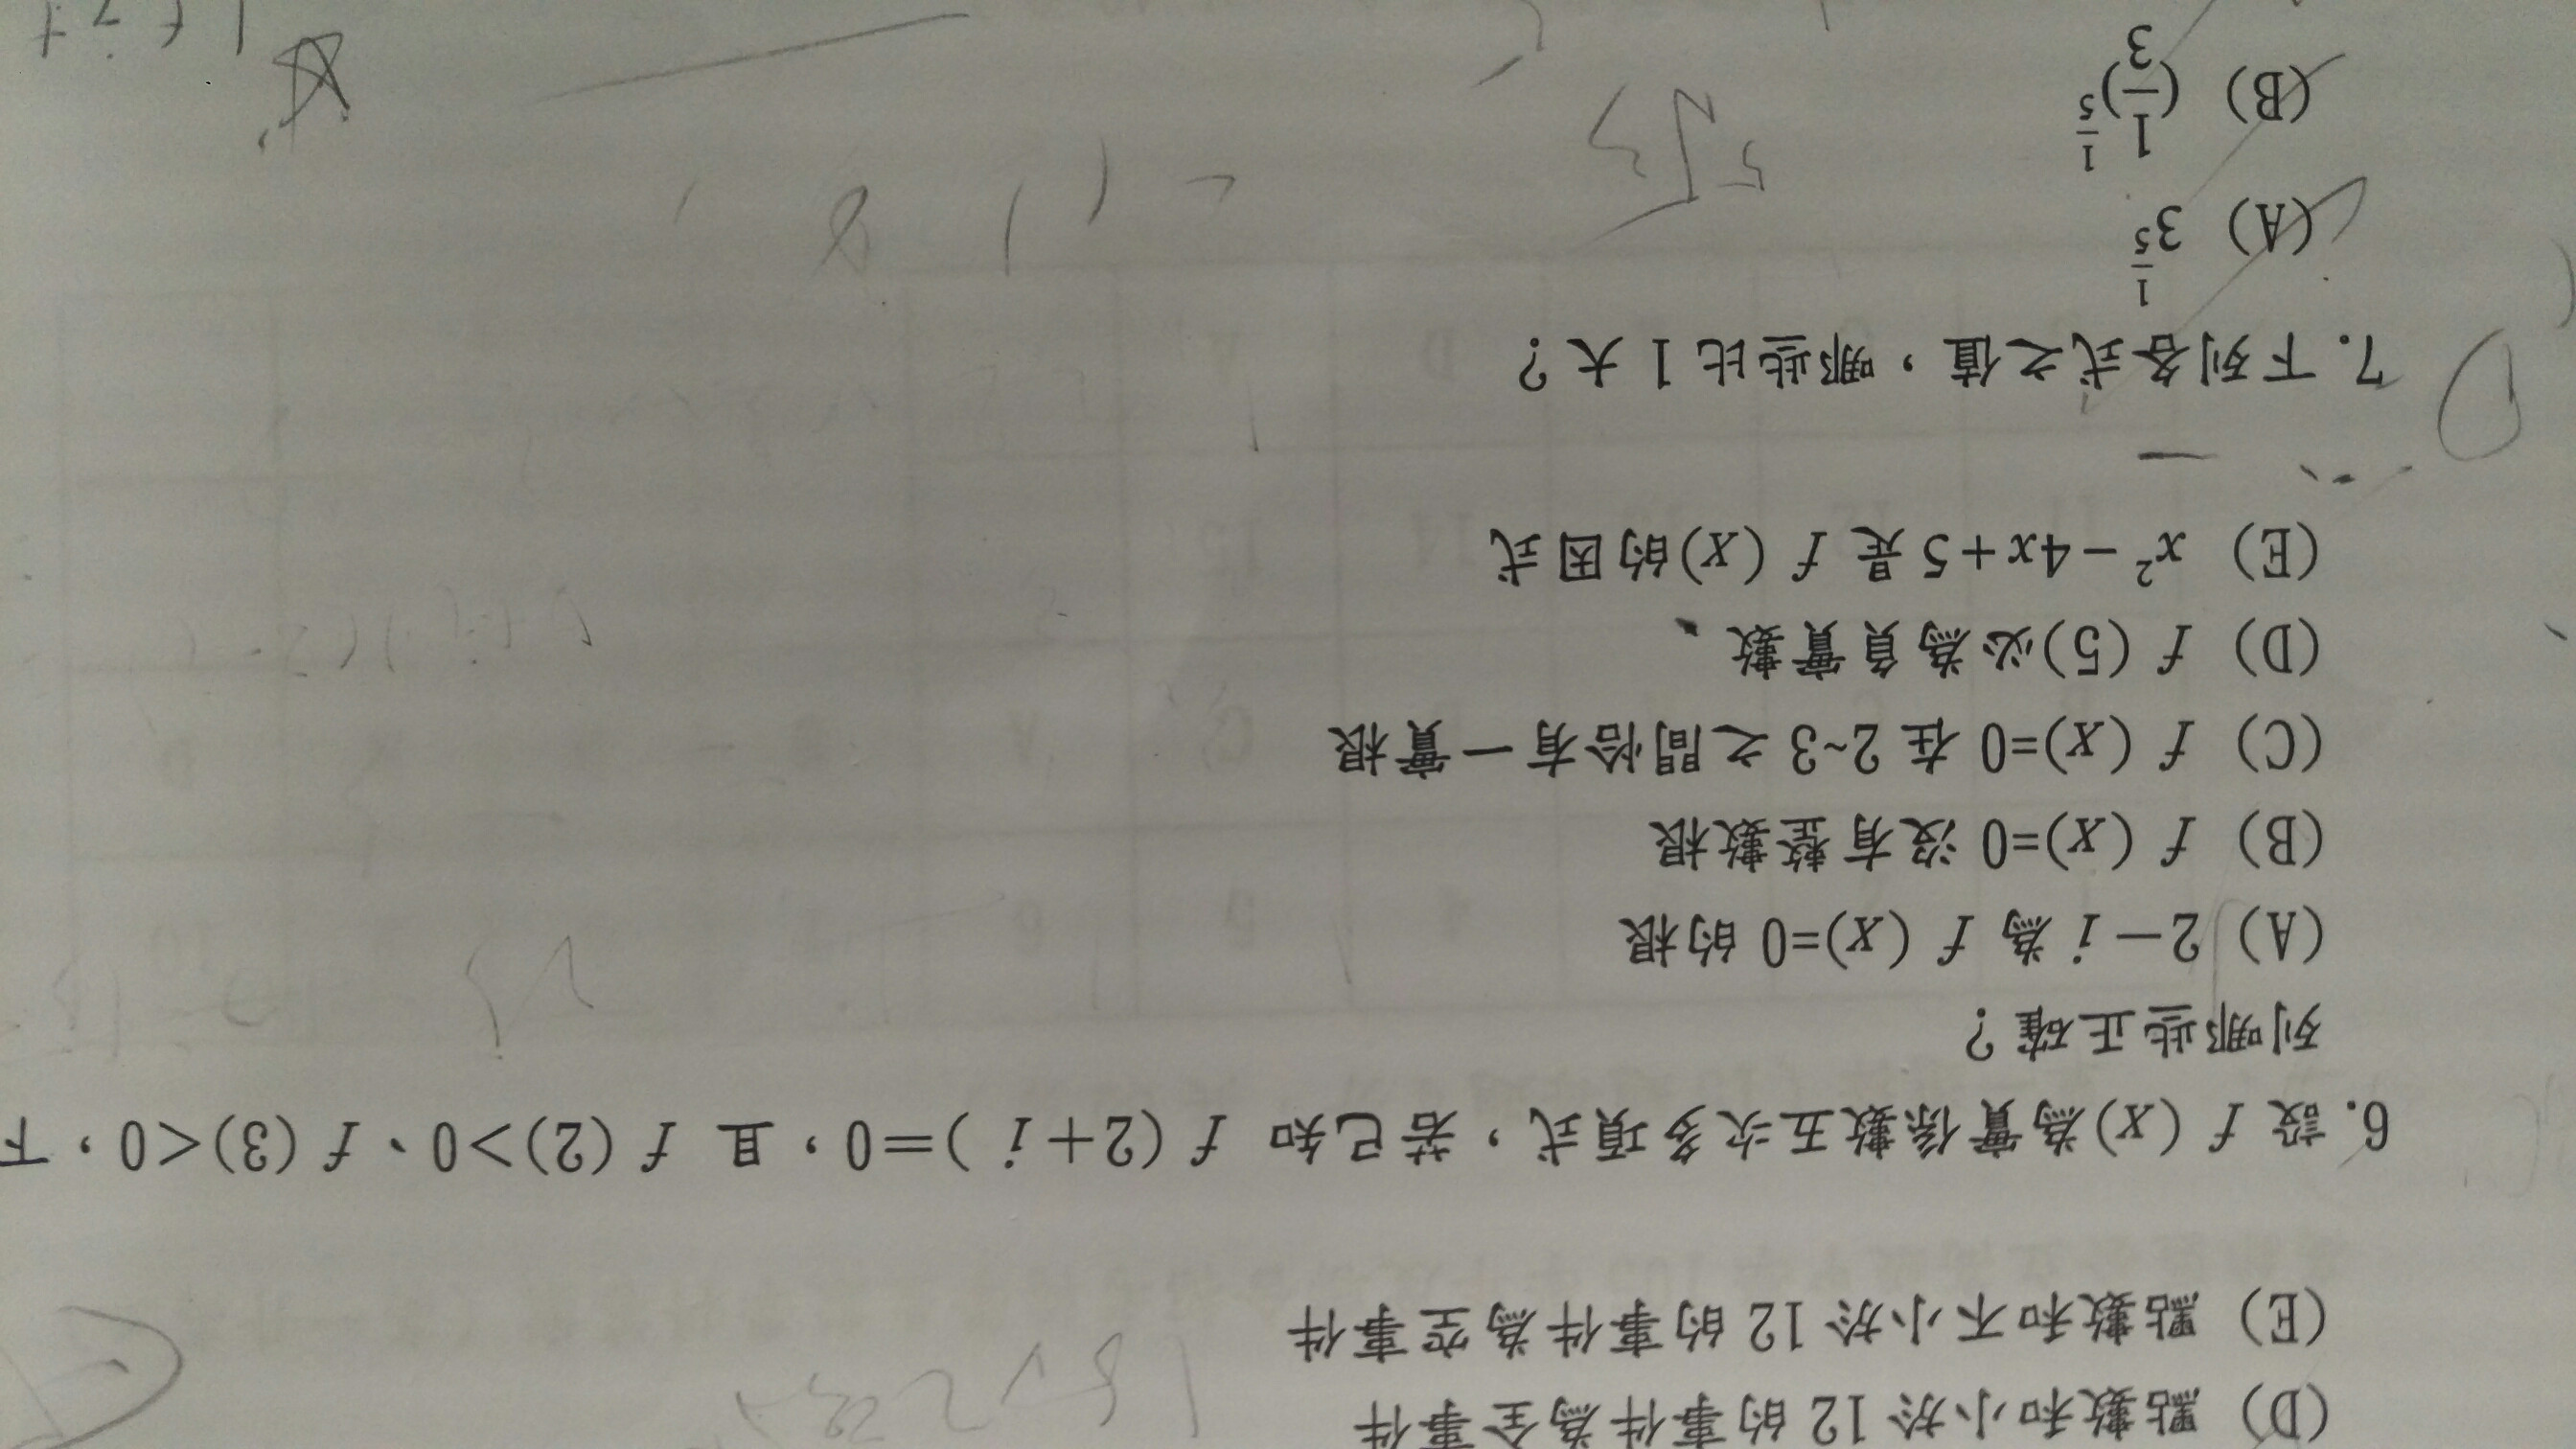 (D) 點數和小於 12 的事件為全事件
(E) 點數和不小於 12 的事件為空事件
6. 設 f (x)為實係數五次多項式，若已知 f (2+i )=0，且 f (2)>0、f (3)<0，下
列哪些正確？
(A) 2－i 為 f (x)=0 的根
(B) f (x)=0 沒有整數根
(C) f (x)=0 在 2~3 之間恰有一實根
(D) f (5)必為負實數
(E) x²－4x+5 是 f (x)的因式
7. 下列各式之值，哪些比 1 大？
(A) 3^{1/5}
5√3
(B) (1/3)^{1/5}